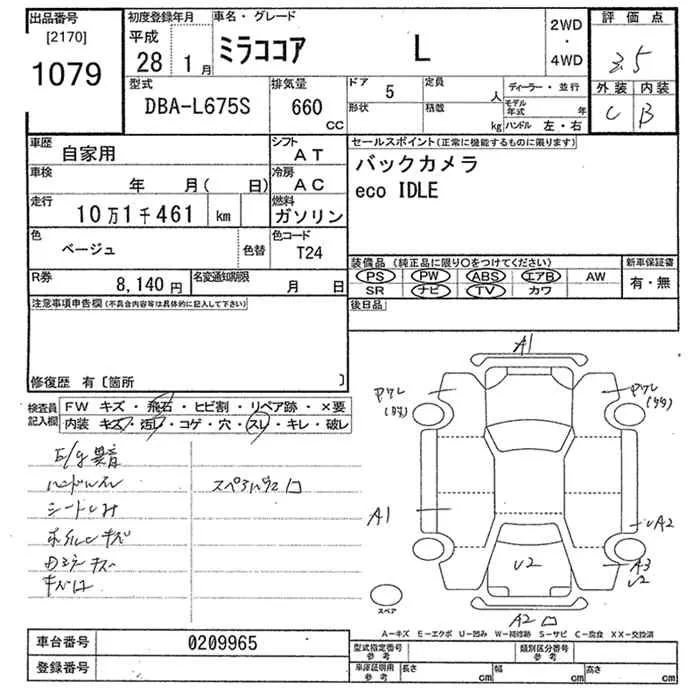 出品番号
[2170]
1079
初度登録年月
平成
28年 1月
車名・グレード
ミラココア L
2WD
・
4WD
評価点
3.5
外装 内装
C B
型式
DBA-L675S
排気量
660
CC
ドア
5
定員
人
形状
積載
kg
ディーラー・並行
モデル年式 年
ハンドル 左・右
車歴
自家用
シフト
AT
車検
年 月( 日)
冷房
AC
走行
10万1千461 km
燃料
ガソリン
色
ベージュ
色替
色コード
T24
R券
8,140円
名変通知期限
月 日
セールスポイント(正常に機能するものに限ります)
バックカメラ
eco IDLE
装備品(純正品に限り○をつけてください)
PS PW ABS エアB AW
SR ナビ TV カワ
新車保証書
有・無
後日品
注意事項申告欄(不具合内容等は具体的に記入して下さい)
修復歴 有〔箇所 〕
検査員
記入欄
FW キズ・飛石・ヒビ割・リペア跡・×要
内装 キズ・汚レ・コゲ・穴・スレ・キレ・破レ
E/g異音
ハンドルスレ
シートシミ
ホイルCキズ
A1
A1
UA2
U2
A3
U2
A2
スペア
A-キズ E-エクボ U-凹み W-補修跡 S-サビ C-腐食 XX-交換済
車台番号
0209965
登録番号
型式指定番号
参考
類別区分番号
参考
車庫証明用
参考
長さ cm
幅 cm
高さ cm